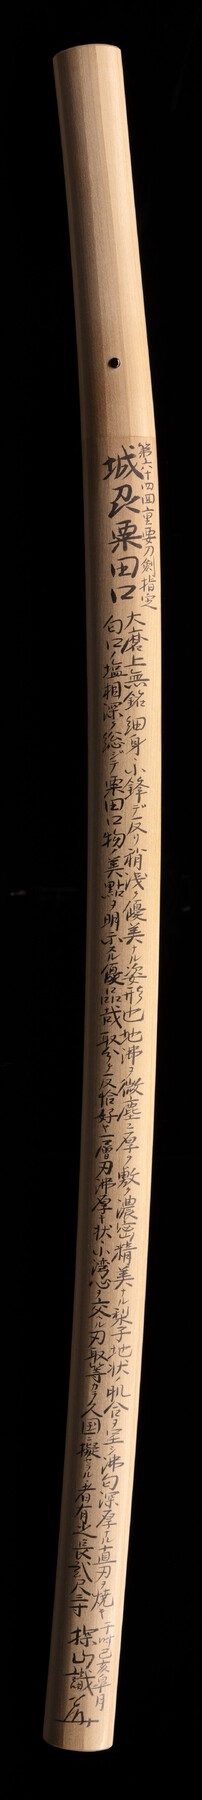 第六十四回重要刀剣指定
城州粟田口
大磨上無銘細身小鋒デ反リ稍浅ク優美ナル姿形也地沸ヲ微塵ニ厚ク敷ク濃密精美ナル梨子地状ノ肌合ヲ呈シ沸匂深厚ナル直刃ヲ焼ク
匂口ノ塩相深ク総ジテ粟田口物ノ美點ヲ明示スル優品哉就分ケ反恰好ヤ一層刃沸厚キ状小湾心ヲ交ル刃取等カラ久国ニ擬セラルヽ者有之長弐尺三寸
于時己亥皐月
探山識